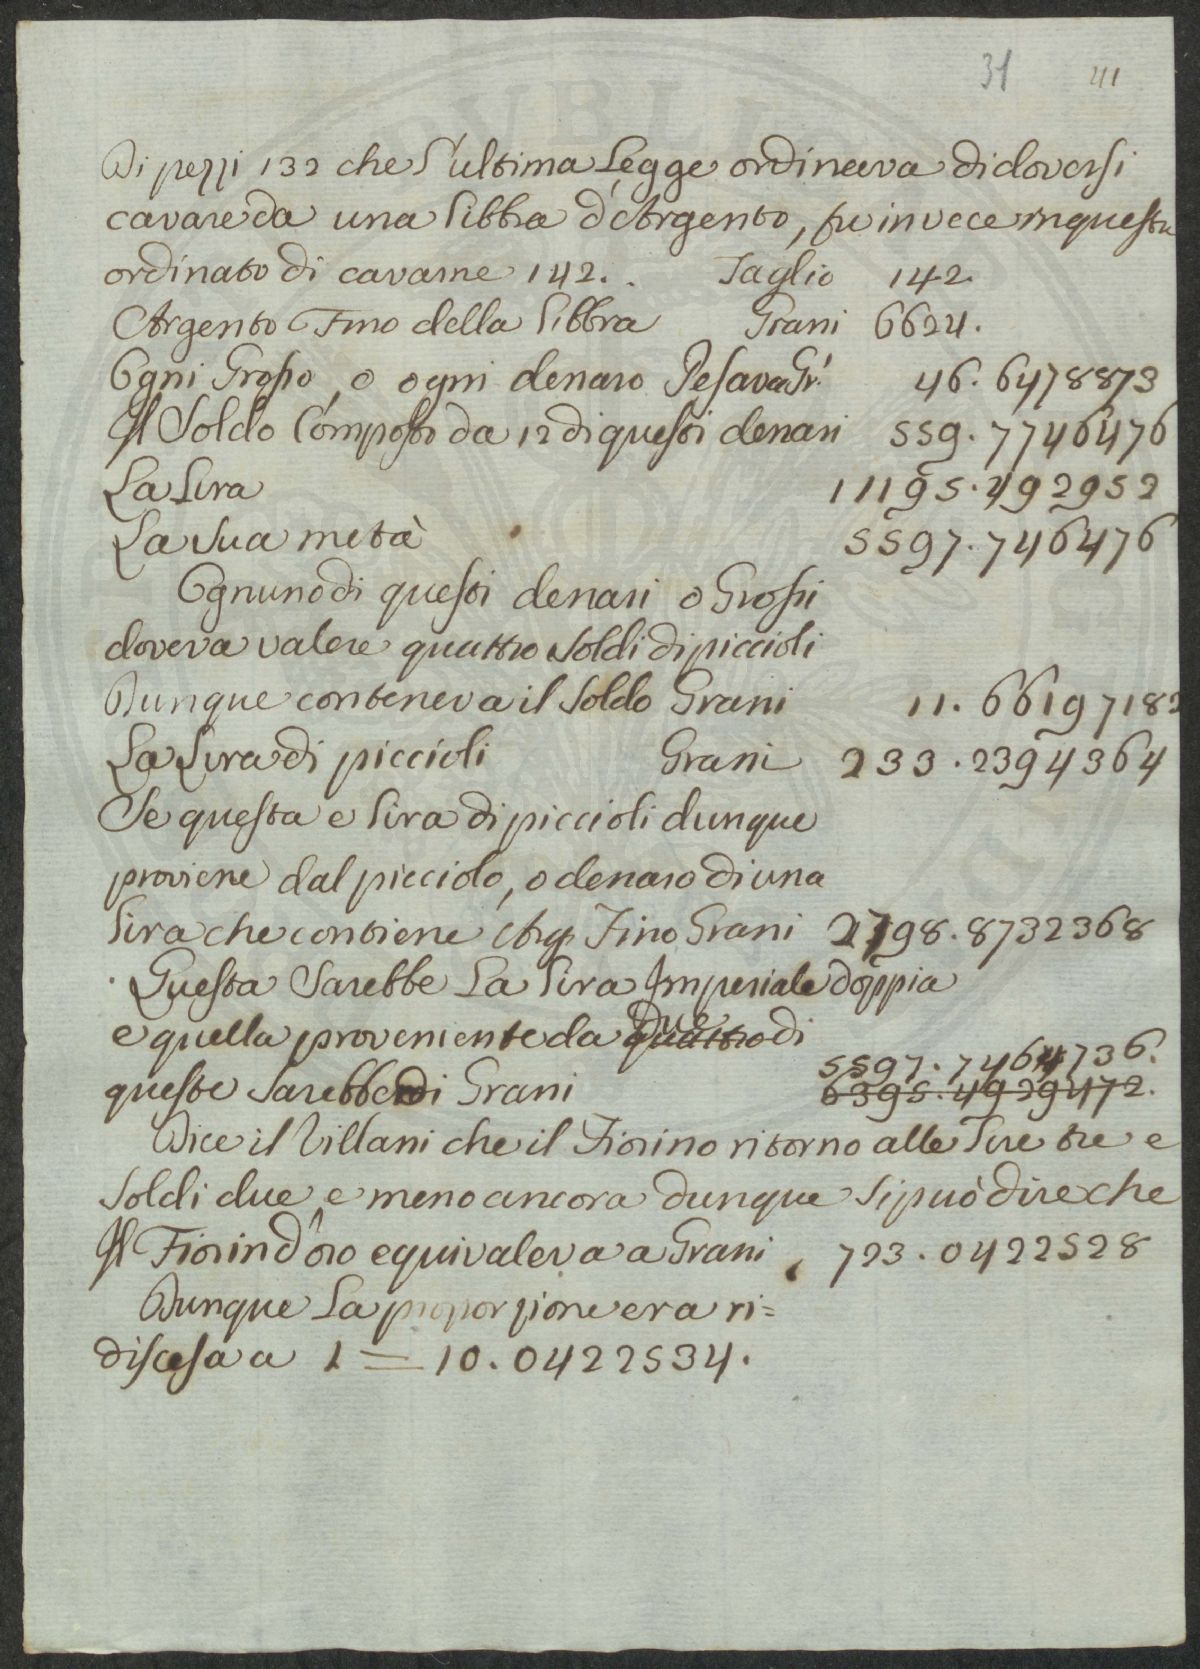 31 41
Di pezzi 132 che l'ultima Legge ordinava di doversi
cavare da una libbra d'Argento, fu invece in questa
ordinato di cavarne 142. . Taglio 142.
Argento Fino della libbra Grani 6624.
Ogni Grosso, o ogni denaro Pesava Gr. 46. 6478873
Il Soldo Composto da 12 di questi denari 559. 7746476
La Lira 11195. 492952
La sua metà 5597. 746476
Ognuno di questi denari o Grossi
doveva valere quattro soldi di piccioli
Dunque conteneva il soldo Grani 11. 66197182
La Lira di piccioli Grani 233. 2394364
Se questa e lira di piccioli dunque
proviene dal picciolo, o denaro di una
lira che contiene Arg. Fino Grani 2798. 8732368
Questa Sarebbe La lira Imperiale doppia
e quella proveniente da quattro Due di
5597. 7464736.
queste sarebbe di Grani 6395. 4929472.
Dice il Villani che il Fiorino ritorno alle Lire tre e
Soldi due e meno ancora dunque si può dire che
Il Fiorin d'oro equivaleva a Grani 723. 0422528
Dunque La proporzione era ri=
discesa a 1 = 10. 0422534.